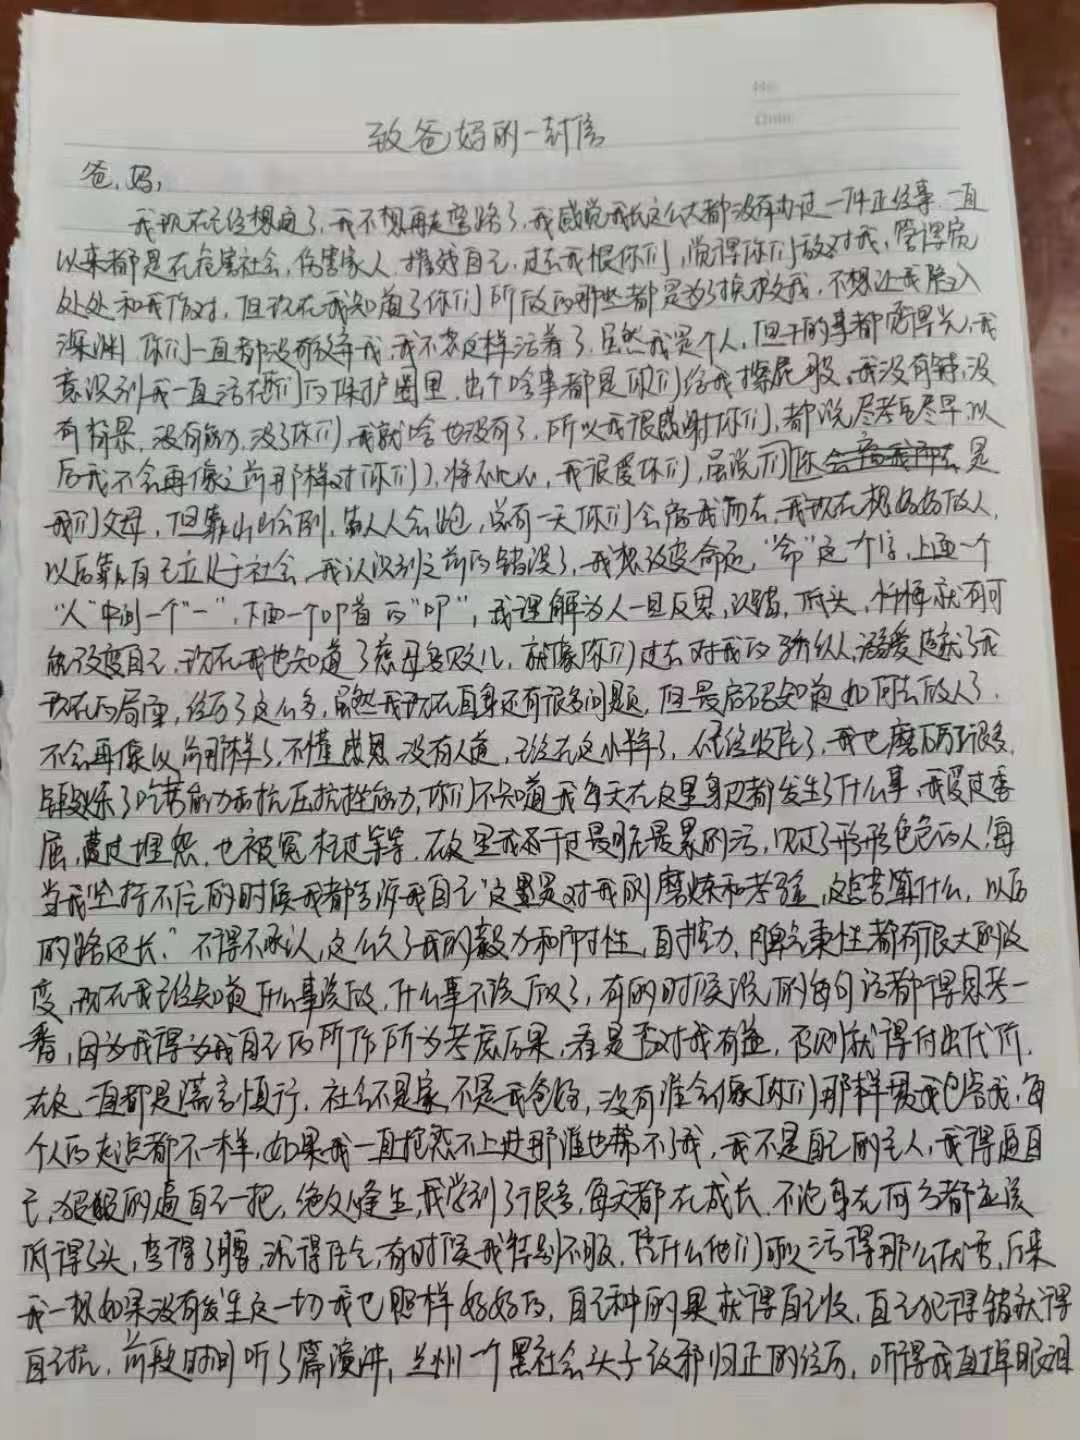 致爸妈的一封信
爸、妈,
我现在已经想通了,我不想再走弯路了,我感觉我长这么大都没有办过一件正经事,一直
以来都是在危害社会,伤害家人,摧残自己,过去我恨你们,觉得你们放对我,管得宽
处处和我作对,但现在我知道了你们所做的那些都是为了挽救我,不想让我陷入
深渊,你们一直都没有放弃我,我不想这样活着了,虽然我是个人,但干的事都
意识到我一直活在你们的保护圈里,出个啥事都是你们给我擦屁股,我没有钱,没
有背景,没有能力,没了你们,我就啥也没有了,所以我很感谢你们,都说尽孝宜尽早,以
后我不会再像之前那样对你们了,将心比心,我很爱你们,虽说们是
我们父母,但靠山山会倒,靠人人会跑,总有一天你们会离我而去,我现在想好好做人,
以后靠自己立足于社会,我认识到之前的错误了,我想改变命运,“命”这个字,上面一个
“人”中间一个“一”,下面一个叩首的“叩”,我理解为人一旦反思,没错,低头,忏悔就有可
能改变自己,现在我也知道了慈母多败儿,就像你们过去对我的骄纵,溺爱造就了我
现在的局面,经历了这么多,虽然我现在自身还有很多问题,但最启码知道如何去做人了,
不会再像以前那样了,不懂感恩,没有人道,现在这小半年了,已经收住了,我也磨砺了很多,
锻炼了吃苦能力和抗压抗挫能力,你们不知道我每天在这里身边都发生了什么事,我受过委
屈,遭过埋怨,也被冤枉过等等,在这里我都干过最脏最累的活,见过了形形色色的人,每
当我坚持不住的时候我都告诉我自己“这里是对我的磨炼和考验,这点苦算什么,以后
的路还长。”不得不承认,这么久了我的毅力和耐性,自控力,忍气柔性都有很大的改
变,现在我已经知道什么事该做,什么事不该做了,有的时候说的每句话都得思考一
番,因为我得为我自己的所作所为考虑后果,看是否对我有益,否则就得付出代价,
在这一直都是谨言慎行,社会不是家,不是我爸妈,没有谁会像你们那样惯我包容我,每
个人的起点都不一样,如果我一直抱怨不上进那谁也帮不了我,我不是自己的主人,我得逼自
己,狠狠的逼自己一把,绝处逢生,我学到了很多,每天都在成长,不论身在何方都应该
低得了头,弯得了腰,沉得住气,有时候我特别不服,凭什么他们可以活得那么优秀,后来
我一想如果没有发生这一切我也照样好好的,自己种的果就得自己收,自己犯得错就得
自己扛,前段时间听了篇演讲,兰州一个黑社会头子改邪归正的经历,听得我直掉眼泪